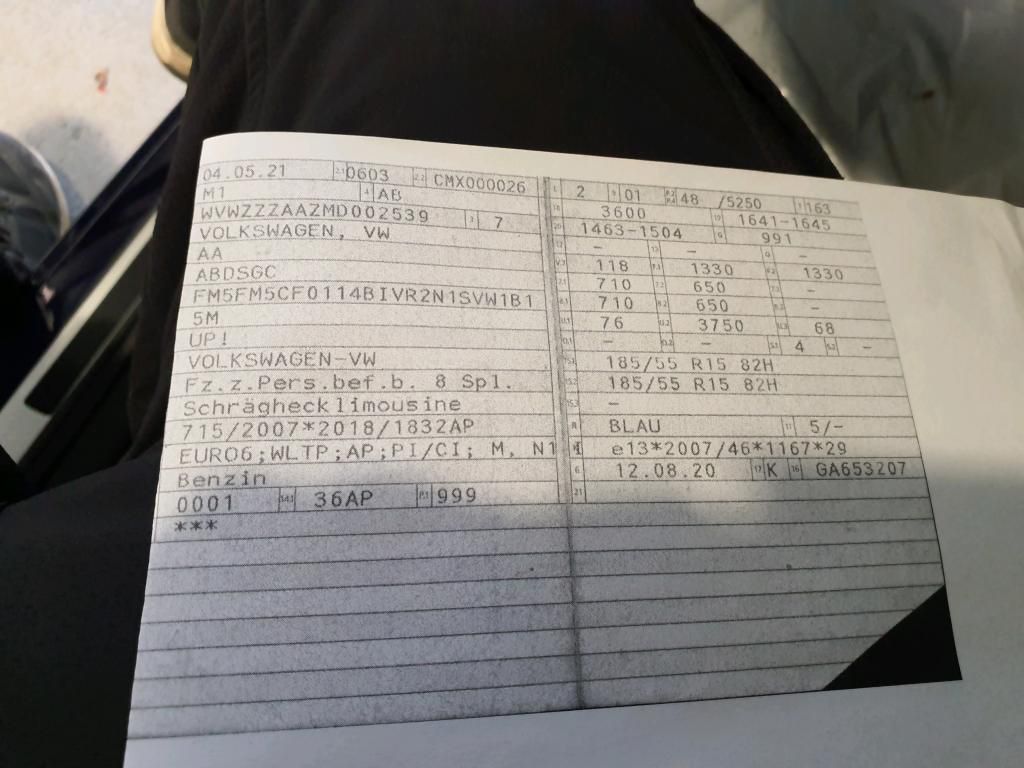 04.05.21 0603 CMX000026
M1 AB
WVWZZZAAZMD002539 7
VOLKSWAGEN, VW
AA
ABDSGC
FM5FM5CF0114BIVR2N1SVW1B1
5M
UP!
VOLKSWAGEN-VW
Fz.z.Pers.bef.b. 8 Spl.
Schräghecklimousine
715/2007*2018/1832AP
EURO6;WLTP;AP;PI/CI; M, N1
Benzin
0001 14.1 36AP P.1 999
***
2 01 48 /5250 163
3600 1641-1645
1463-1504 991
- - -
118 1330 1330
710 650 -
710 650 -
76 3750 68
- - 4 -
185/55 R15 82H
185/55 R15 82H
-
R BLAU 11 5/-
K e13*2007/46*1167*29
6 12.08.20 17 K 16 GA653207
21